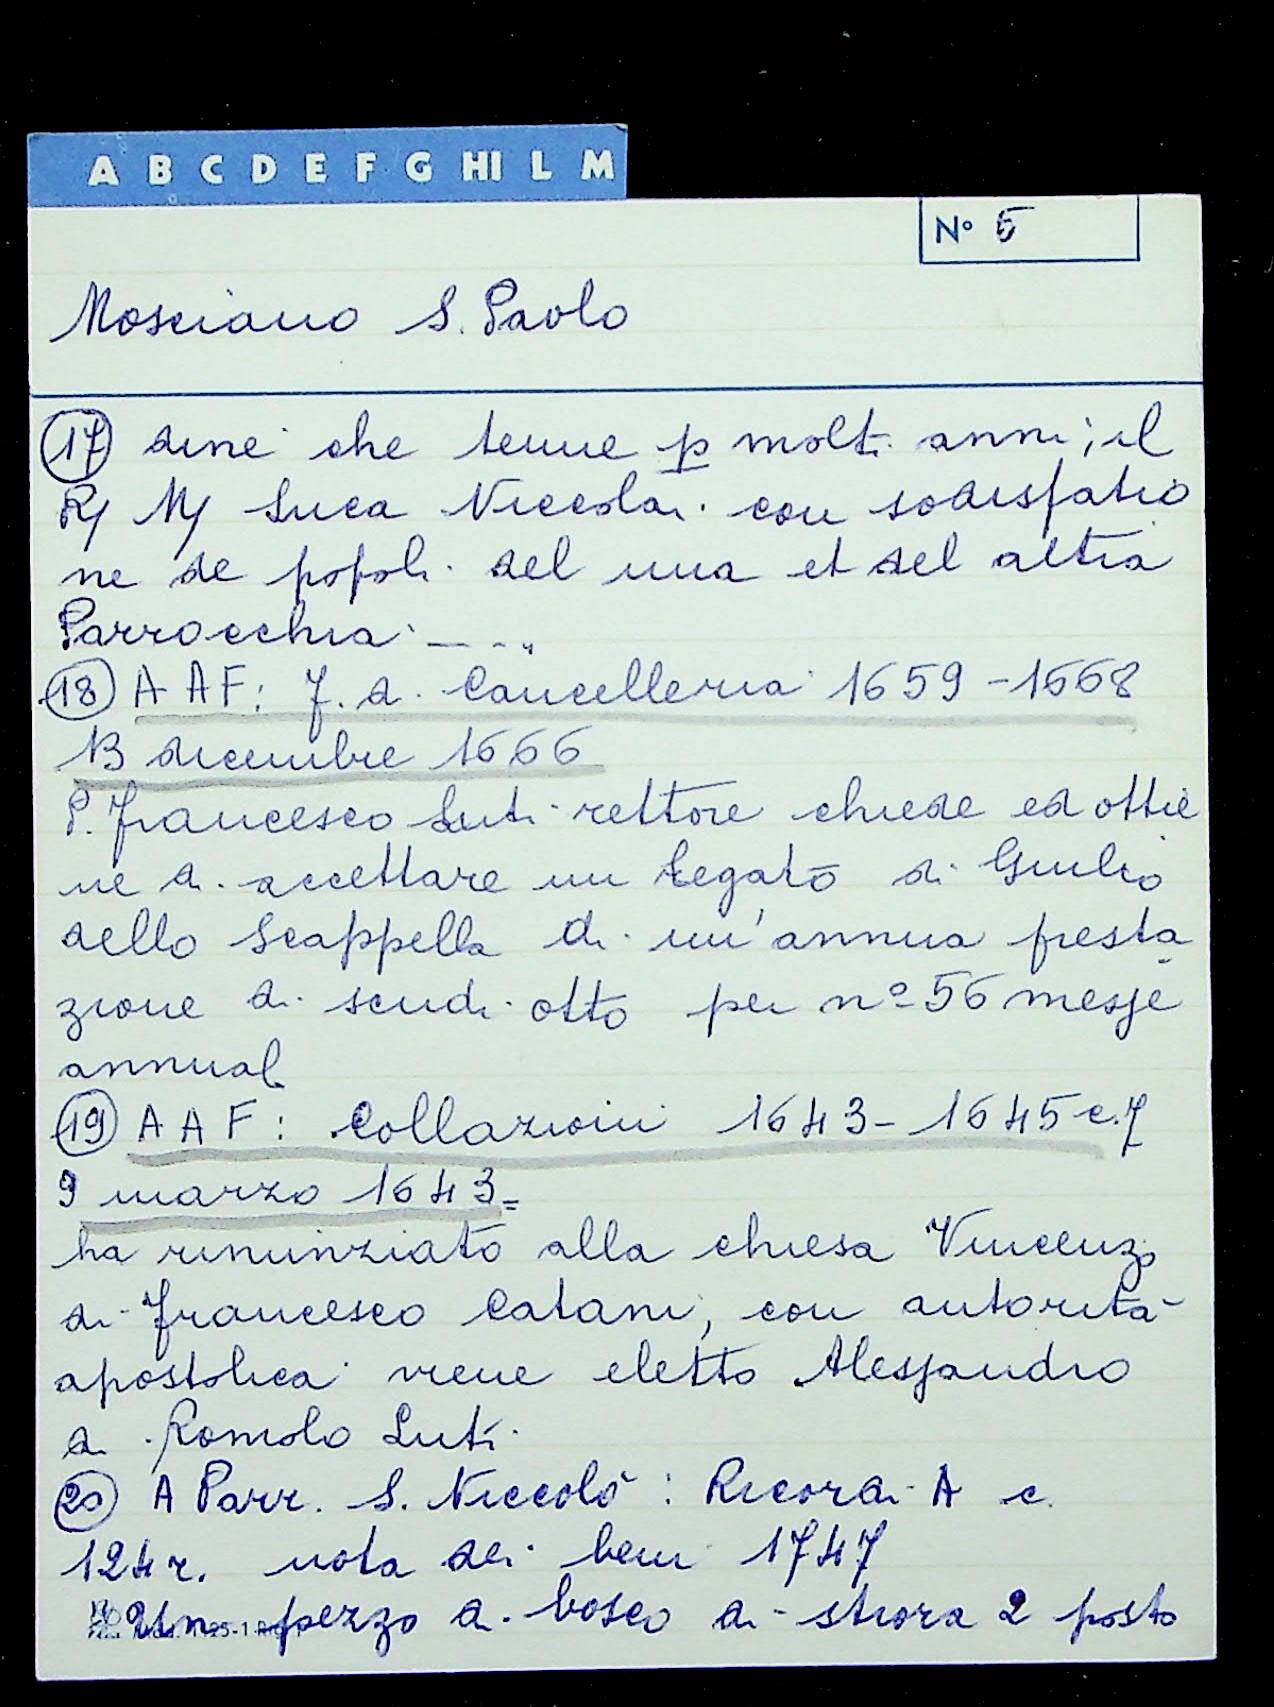 A B C D E F G HI L M
N° 5
Mosciano S. Paolo
17 dine che tenne p molti anni; il
R/ M/ Luca Niccolai con sodisfatio
ne de popoli del una et del altra
Parrocchia ----"
18 AAF: f. di Cancelleria 1659-1668
13 dicembre 1666
P. Francesco Luti rettore chiede ed ottie
ne di accettare un legato di Giulio
dello Scappella di un'annua presta
zione di scudi otto per n° 56 messe
annuali
19 AAF: Collazioni 1643-1645 c. 7
9 marzo 1643=
ha rinunziato alla chiesa Vincenzo
di Francesco Catani, con autorità
apostolica viene eletto Alessandro
di Romolo Luti
20 A Parr. S. Niccolò: Ricordi A c.
124 r. nota dei beni 1747
"Un pezzo di bosco di stiora 2 posto